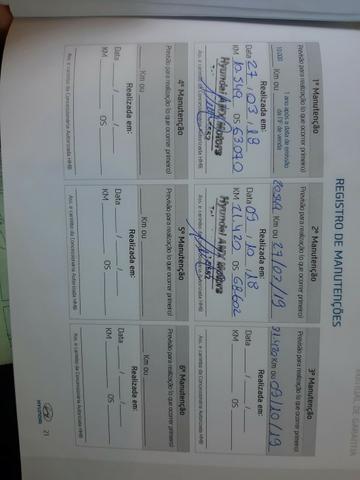 MANUAL DE GARANTIA
REGISTRO DE MANUTENÇÕES
1ª Manutenção
Previsão para realização (o que ocorrer primeiro)
10.000 Km ou 1 ano após a data de emissão da NF de venda
Realizada em:
Data 27 / 03 / 18
KM 10.549 OS 63070
Ass. e carimbo da Concessionária Autorizada HMB
2ª Manutenção
Previsão para realização (o que ocorrer primeiro)
Km ou 27/03/19
Realizada em:
Data 09 / 10 / 18
KM 21.420 OS 68602
Ass. e carimbo da Concessionária Autorizada HMB
3ª Manutenção
Previsão para realização (o que ocorrer primeiro)
31.420 Km ou 09/10/19
Realizada em:
Data / /
KM OS
Ass. e carimbo da Concessionária Autorizada HMB
4ª Manutenção
Previsão para realização (o que ocorrer primeiro)
Km ou
Realizada em:
Data / /
KM OS
Ass. e carimbo da Concessionária Autorizada HMB
5ª Manutenção
Previsão para realização (o que ocorrer primeiro)
Km ou
Realizada em:
Data / /
KM OS
Ass. e carimbo da Concessionária Autorizada HMB
6ª Manutenção
Previsão para realização (o que ocorrer primeiro)
Km ou
Realizada em:
Data / /
KM OS
Ass. e carimbo da Concessionária Autorizada HMB
HYUNDAI 21